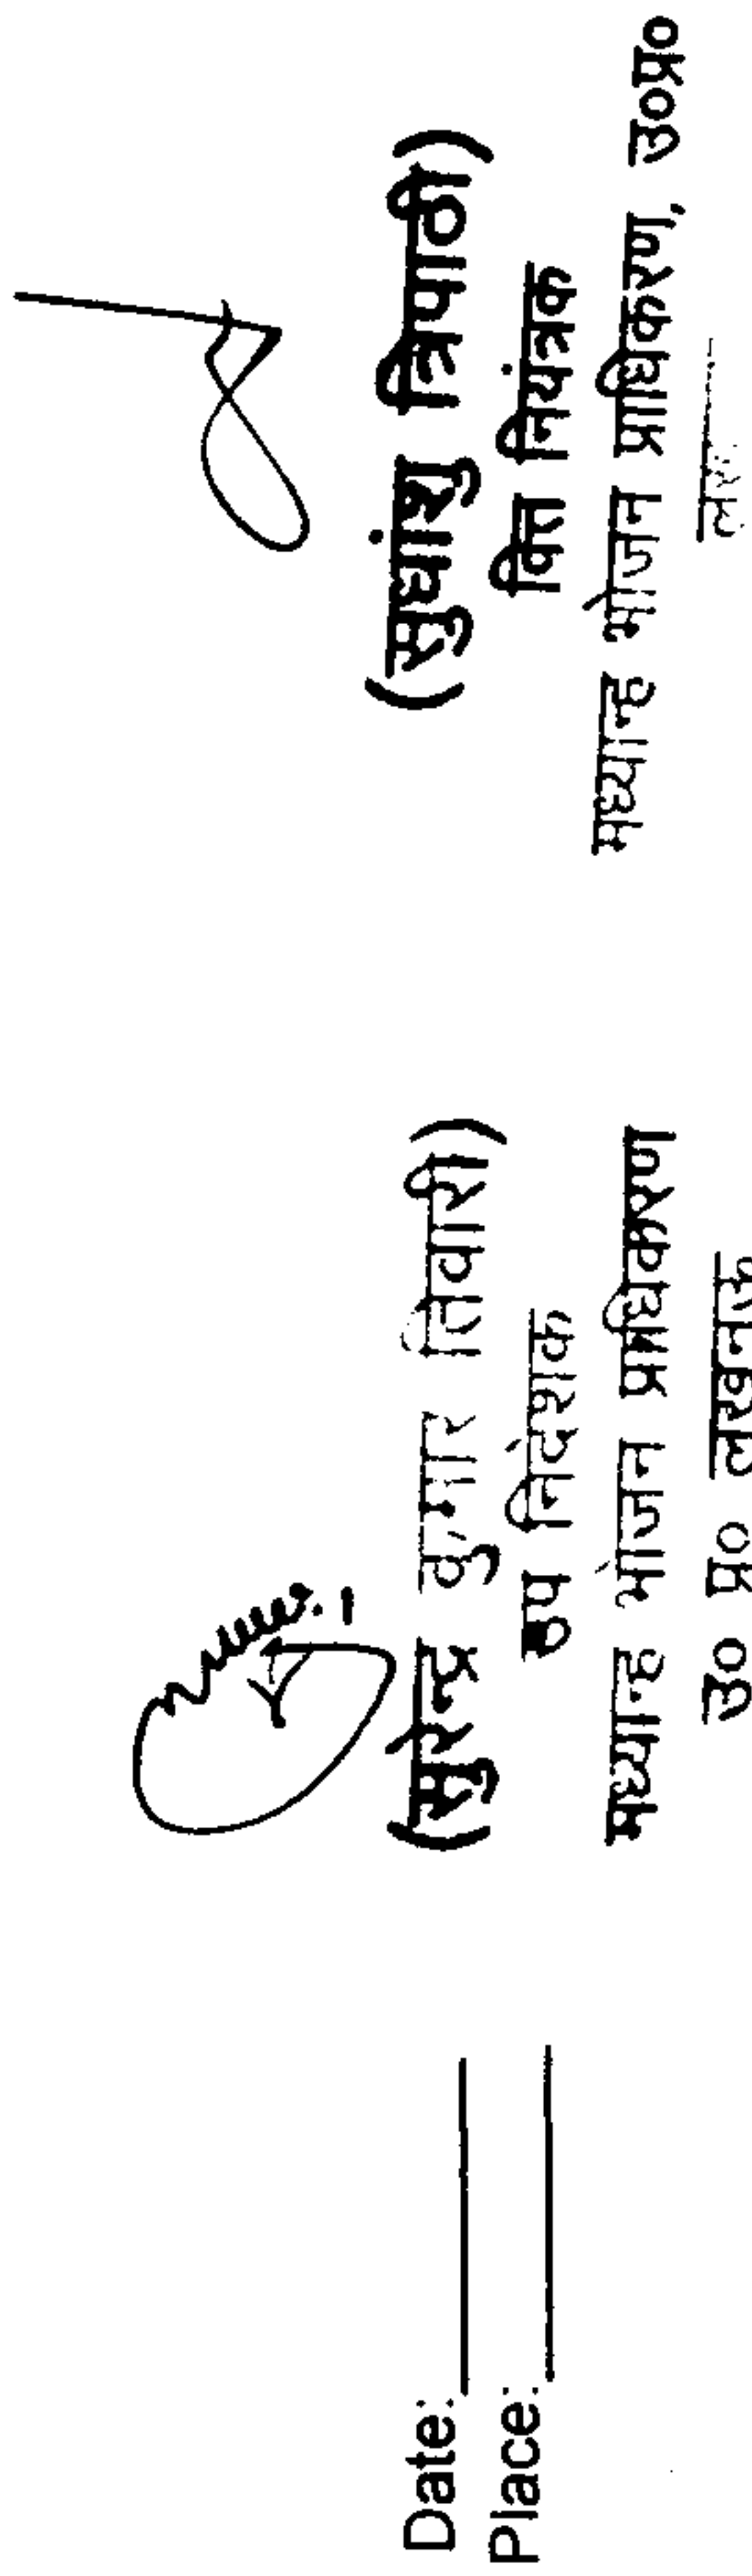 Date:
Place:
(सुरेन्द्र कुमार तिवारी)
उप निदेशक
मध्यान्ह भोजन प्राधिकरण
उ० प्र० लखनऊ
(सुधांशु त्रिपाठी)
वित्त नियंत्रक
मध्यान्ह भोजन प्राधिकरण, उ०प्र०